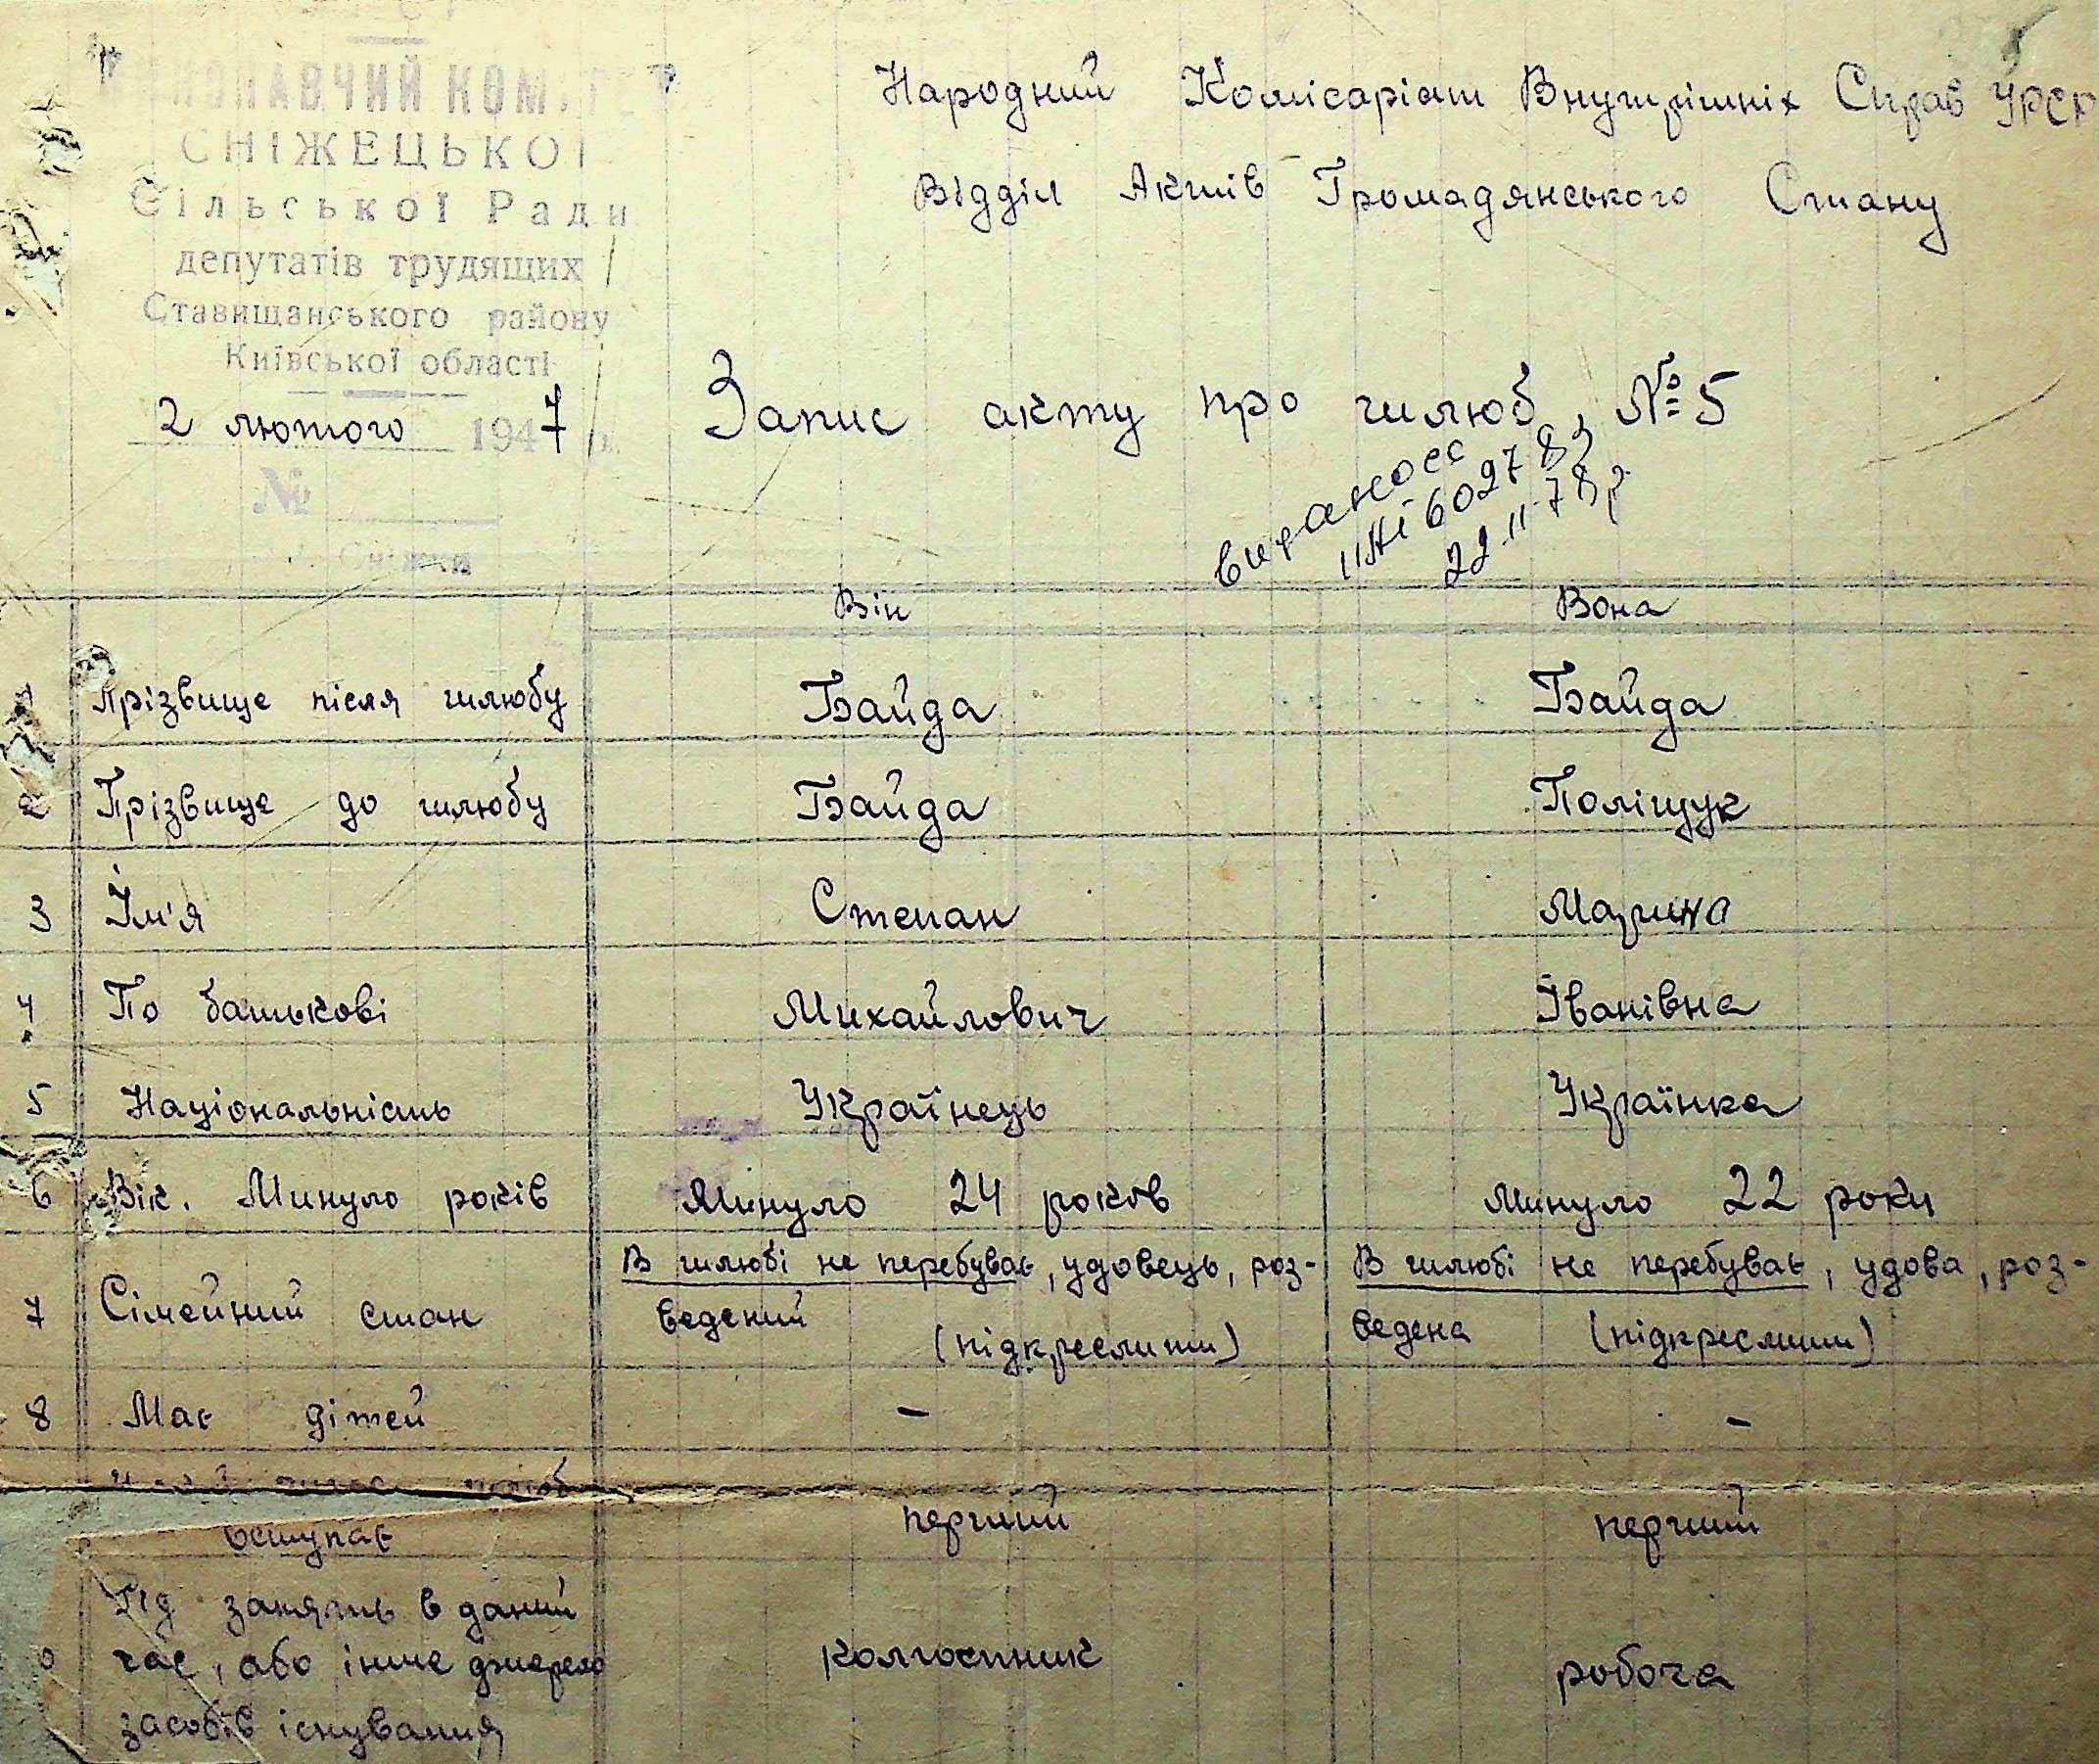 Народний Комісаріат Внутрішніх Справ УРСР
Відділ Актів Громадянського Стану
ВИКОНАВЧИЙ КОМІТЕТ
СНІЖЕЦЬКОЇ
Сільської Ради
депутатів трудящих
Ставищанського району
Київської області
2 лютого 1947 р.
№
Запис акту про шлюб, № 5
22.11.78р
Він Вона
1 Прізвище після шлюбу Байда Байда
2 Прізвище до шлюбу Байда Поліщук
3 Ім'я Степан Марина
4 По батькові Михайлович Іванівна
5 Національність Українець Українка
6 Вік. Минуло років Минуло 24 років Минуло 22 роки
7 Сімейний стан В шлюбі не перебуває, удовець, роз-
ведений (підкреслити)
В шлюбі не перебуває, удова, роз-
ведена (підкреслити)
8 Має дітей – –
шлюб
вступає перший перший
Рід занять в даний
час, або інше джерело
засобів існування
колгоспник робоча